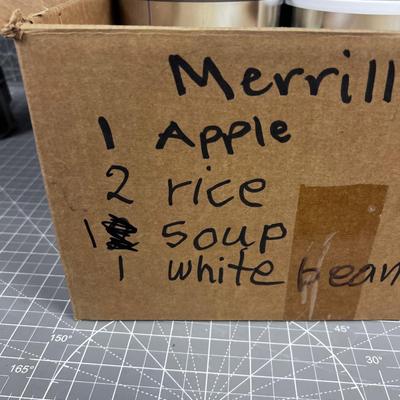 Merrill
1 Apple
2 rice
1 soup
1 white bean
150°
165°
45°
30°
15°